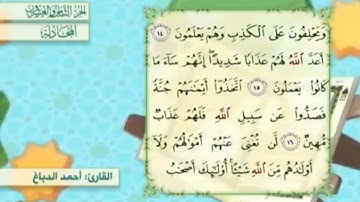 الجزء الثامن والعشرون
المجادلة
وَيَحْلِفُونَ عَلَى ٱلْكَذِبِ وَهُمْ يَعْلَمُونَ ١٤
أَعَدَّ ٱللَّهُ لَهُمْ عَذَابًا شَدِيدًا ۖ إِنَّهُمْ سَآءَ مَا
كَانُوا۟ يَعْمَلُونَ ١٥ ٱتَّخَذُوٓا۟ أَيْمَـٰنَهُمْ جُنَّةً
فَصَدُّوا۟ عَن سَبِيلِ ٱللَّهِ فَلَهُمْ عَذَابٌ
مُّهِينٌ ١٦ لَّن تُغْنِىَ عَنْهُمْ أَمْوَٰلُهُمْ وَلَآ
أَوْلَـٰدُهُم مِّنَ ٱللَّهِ شَيْـًٔا ۚ أُو۟لَـٰٓئِكَ أَصْحَـٰبُ
القارئ: أحمد الدباغ